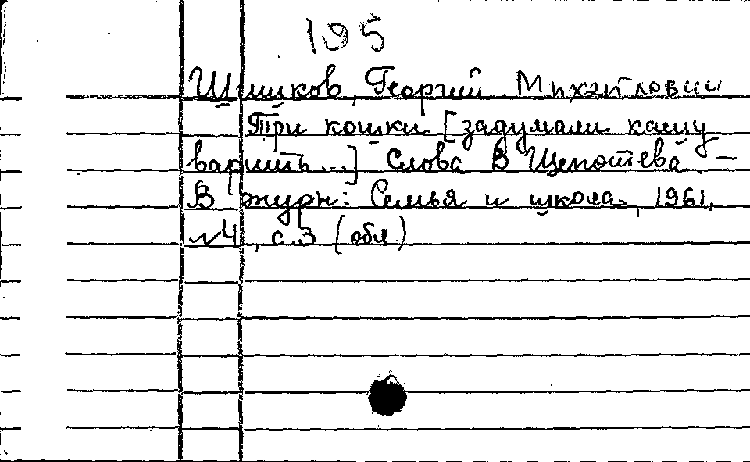 195
Шишков, Георгий Михайлович
Три кошки [задумали кашу
варить...] Слова В Щепотева. –
В журн: Семья и школа, 1961,
№4, с.3 (обл)